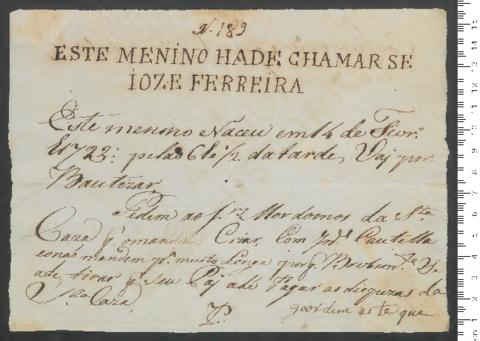 N. 189
ESTE MENINO HADE CHAMAR SE
IOZE FERREIRA
Este menino Naceu em 14 de Feur.º
1723: pelas 6 e ½ da tarde, Vaj por
Bautezar,
Pedem ao s.rs Mordomos da S.ta
Caza q' o mandem Criar, Com tod.ª Cautella
e o nao mandem p.ª muito Longe
ade tirar q' seu Paj ade Pagar as despezas da
S.ta Caza
goardem este que